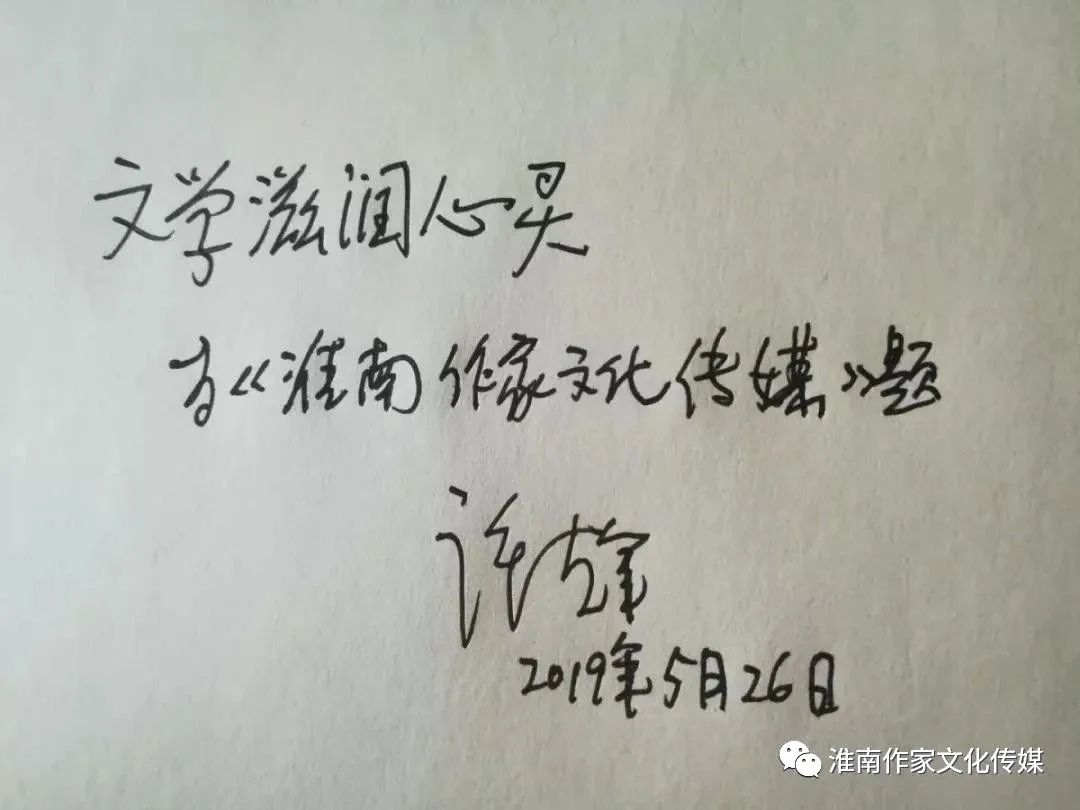 文学滋润心灵
为《淮南作家文化传媒》题
许辉
2019年5月26日
淮南作家文化传媒